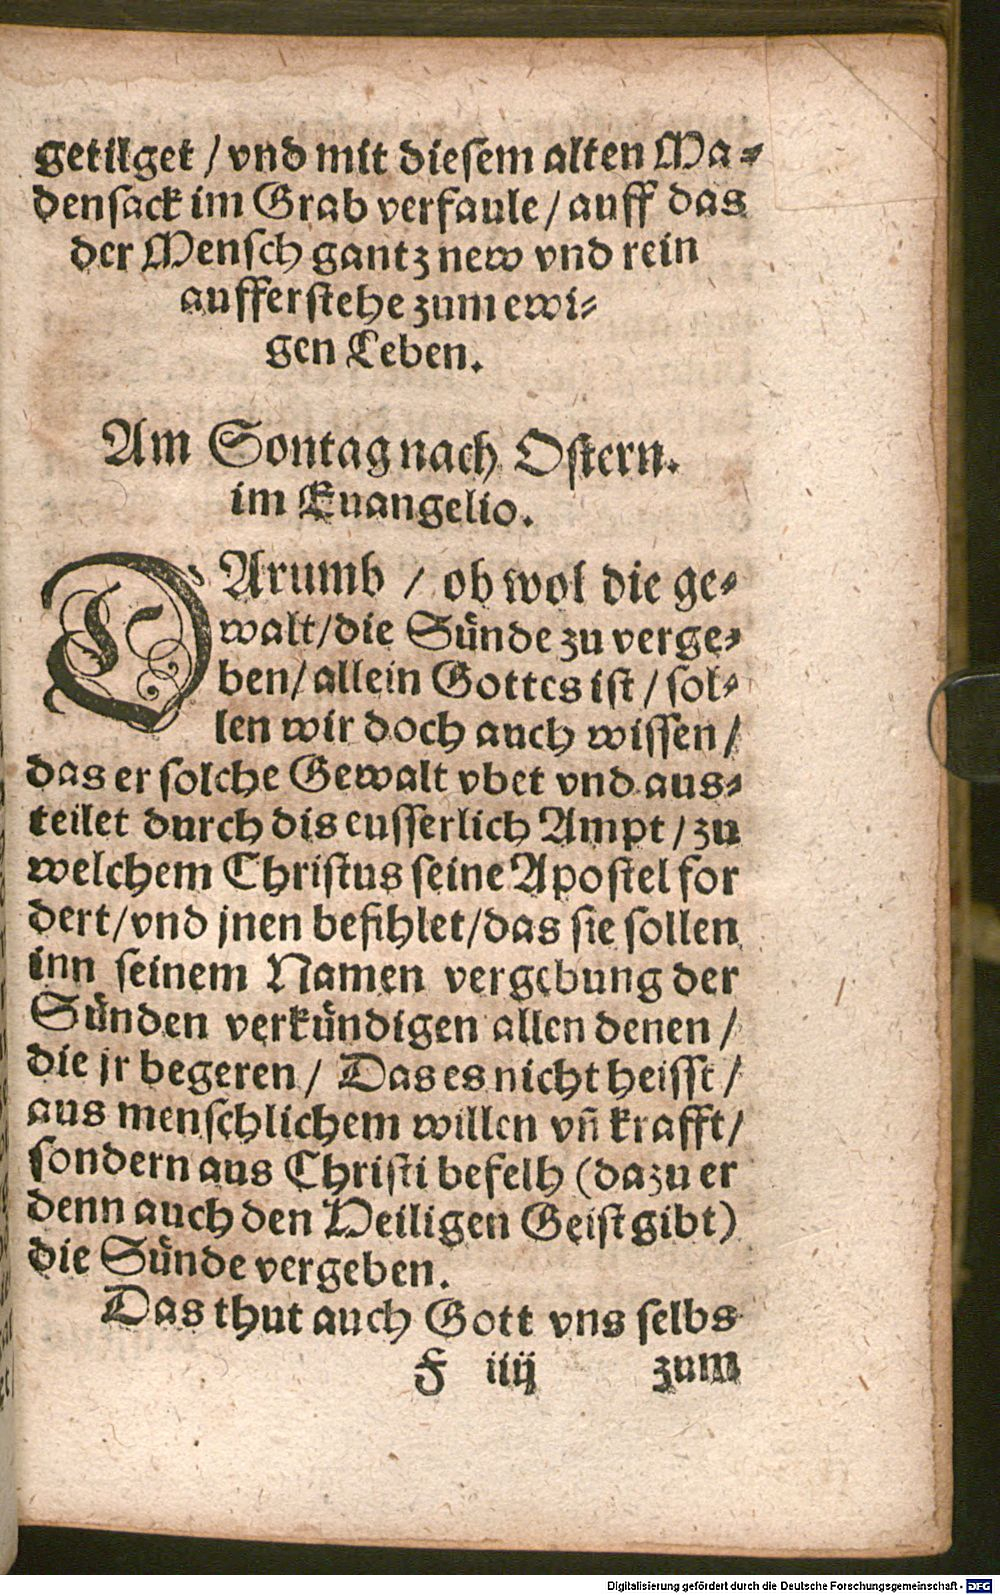 getilget / vnd mit diesem alten Ma⸗
densack im Grab verfaule / auff das
der Mensch gantz new vnd rein
aufferstehe zum ewi⸗
gen Leben.
Am Sontag nach Ostern.
im Euangelio.
DArumb / ob wol die ge⸗
walt / die Sünde zu verge⸗
ben / allein Gottes ist / sol⸗
len wir doch auch wissen /
das er solche Gewalt vbet vnd aus⸗
teilet durch dis eusserlich Ampt / zu
welchem Christus seine Apostel for
dert / vnd jnen befihlet / das sie sollen
inn seinem Namen vergebung der
Sünden verkündigen allen denen /
die jr begeren / Das es nicht heisst /
aus menschlichem willen vñ krafft /
sondern aus Christi befelh (dazu er
denn auch den Heiligen Geist gibt)
die Sünde vergeben.
Das thut auch Gott vns selbs
F iiij zum
Digitalisierung gefördert durch die Deutsche Forschungsgemeinschaft - DFG